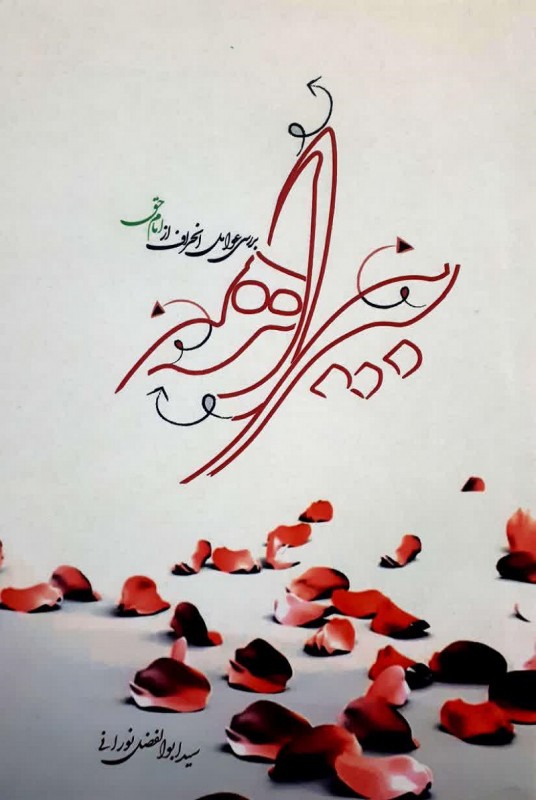 بررسی عوامل انحراف از امام حق
سید ابوالفضل نورانی